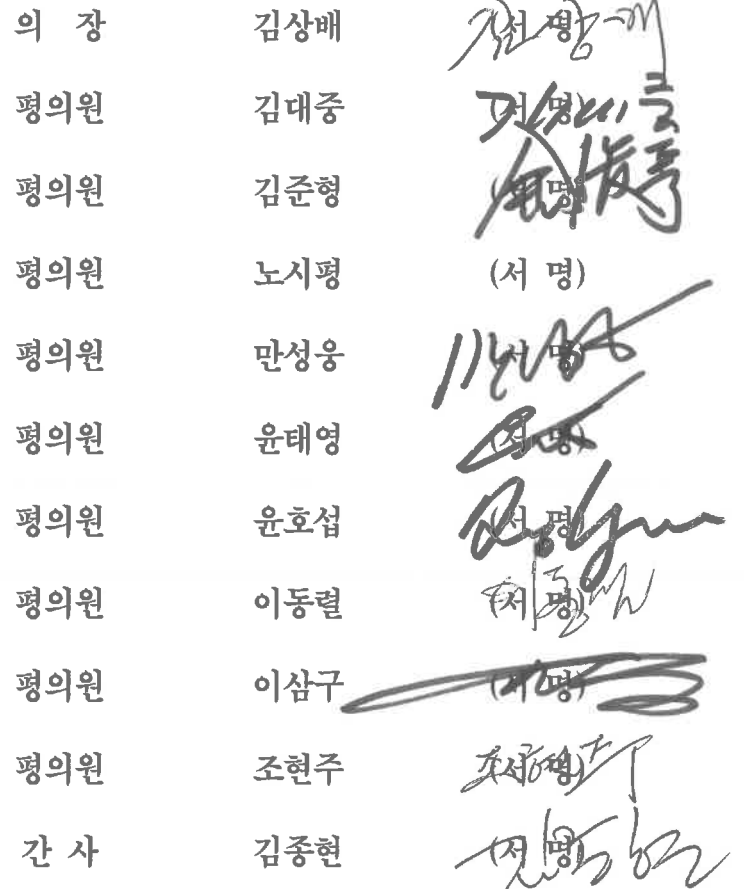 의 장 김상배 (서 명)
평의원 김대중 (서 명)
평의원 김준형 (서 명)
평의원 노시평 (서 명)
평의원 만성웅 (서 명)
평의원 윤태영 (서 명)
평의원 윤호섭 (서 명)
평의원 이동렬 (서 명)
평의원 이삼구 (서 명)
평의원 조현주 (서 명)
간 사 김종현 (서 명)